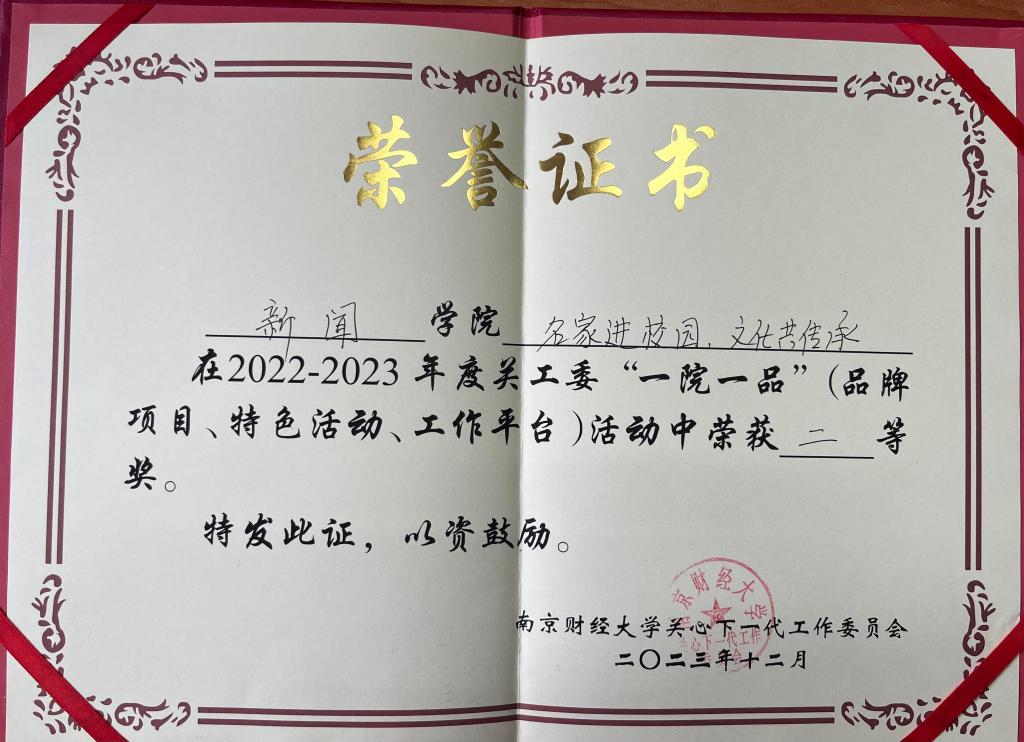 荣誉证书
新闻学院名家进校园、文化共传承
在2022-2023年度关工委“一院一品”（品牌
项目、特色活动、工作平台）活动中荣获二等
奖。
特发此证，以资鼓励。
南京财经大学
南京财经大学关心下一代工作委员会
二〇二三年十二月